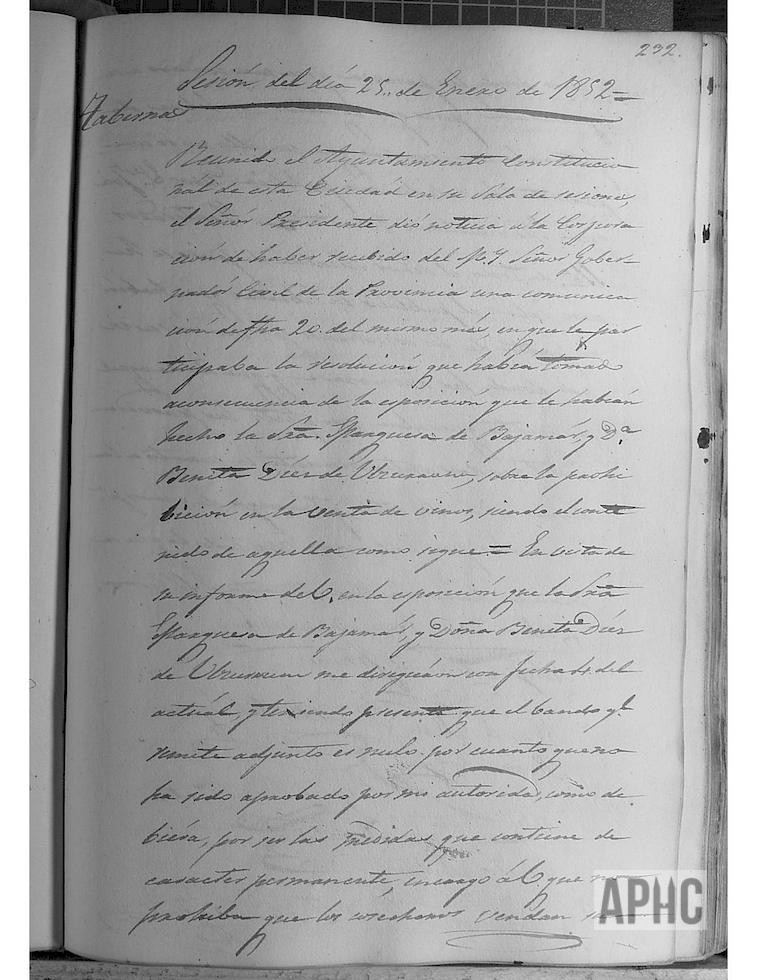 232.
Sesión del día 25,, de Enero de 1852=
Tabernas
Reunido el Ayuntamiento Constitucio
nál de esta Ciudad en su Sala de sesiones,
el Señór Presidente dió noticia á la Corpora
ción de haber recibido del M. Y. Señor Gober-
nadór Civil de la Provincia una comunica
ción de fha 20. del mismo més, en que le par
ticipaba la resolución que había tomado
aconsecuencia de la esposición que le habian
hecho la Sra. Marquesa de Bajamár, y D.ª
Benita Diéz de Ulzurrun, sobre la prohi
bición en la venta de vinos, siendo el conte
nido de aquella como sigue = En vista de
su informe del 6, en la esposición que la Sra
Marquesa de Bajamár, y Doña Benita Diéz
de Ulzurrun me dirigieron con fecha 4 del
actuál y teniendo presente que el bando q.e
remite adjunto es nulo por cuanto que no
ha sido aprobado por mi autoridad, como de
biera, por ser las medidas que contiene de
caracter permanente, encargo á V. que no
prohiba que los cosecheros vendan
APHC